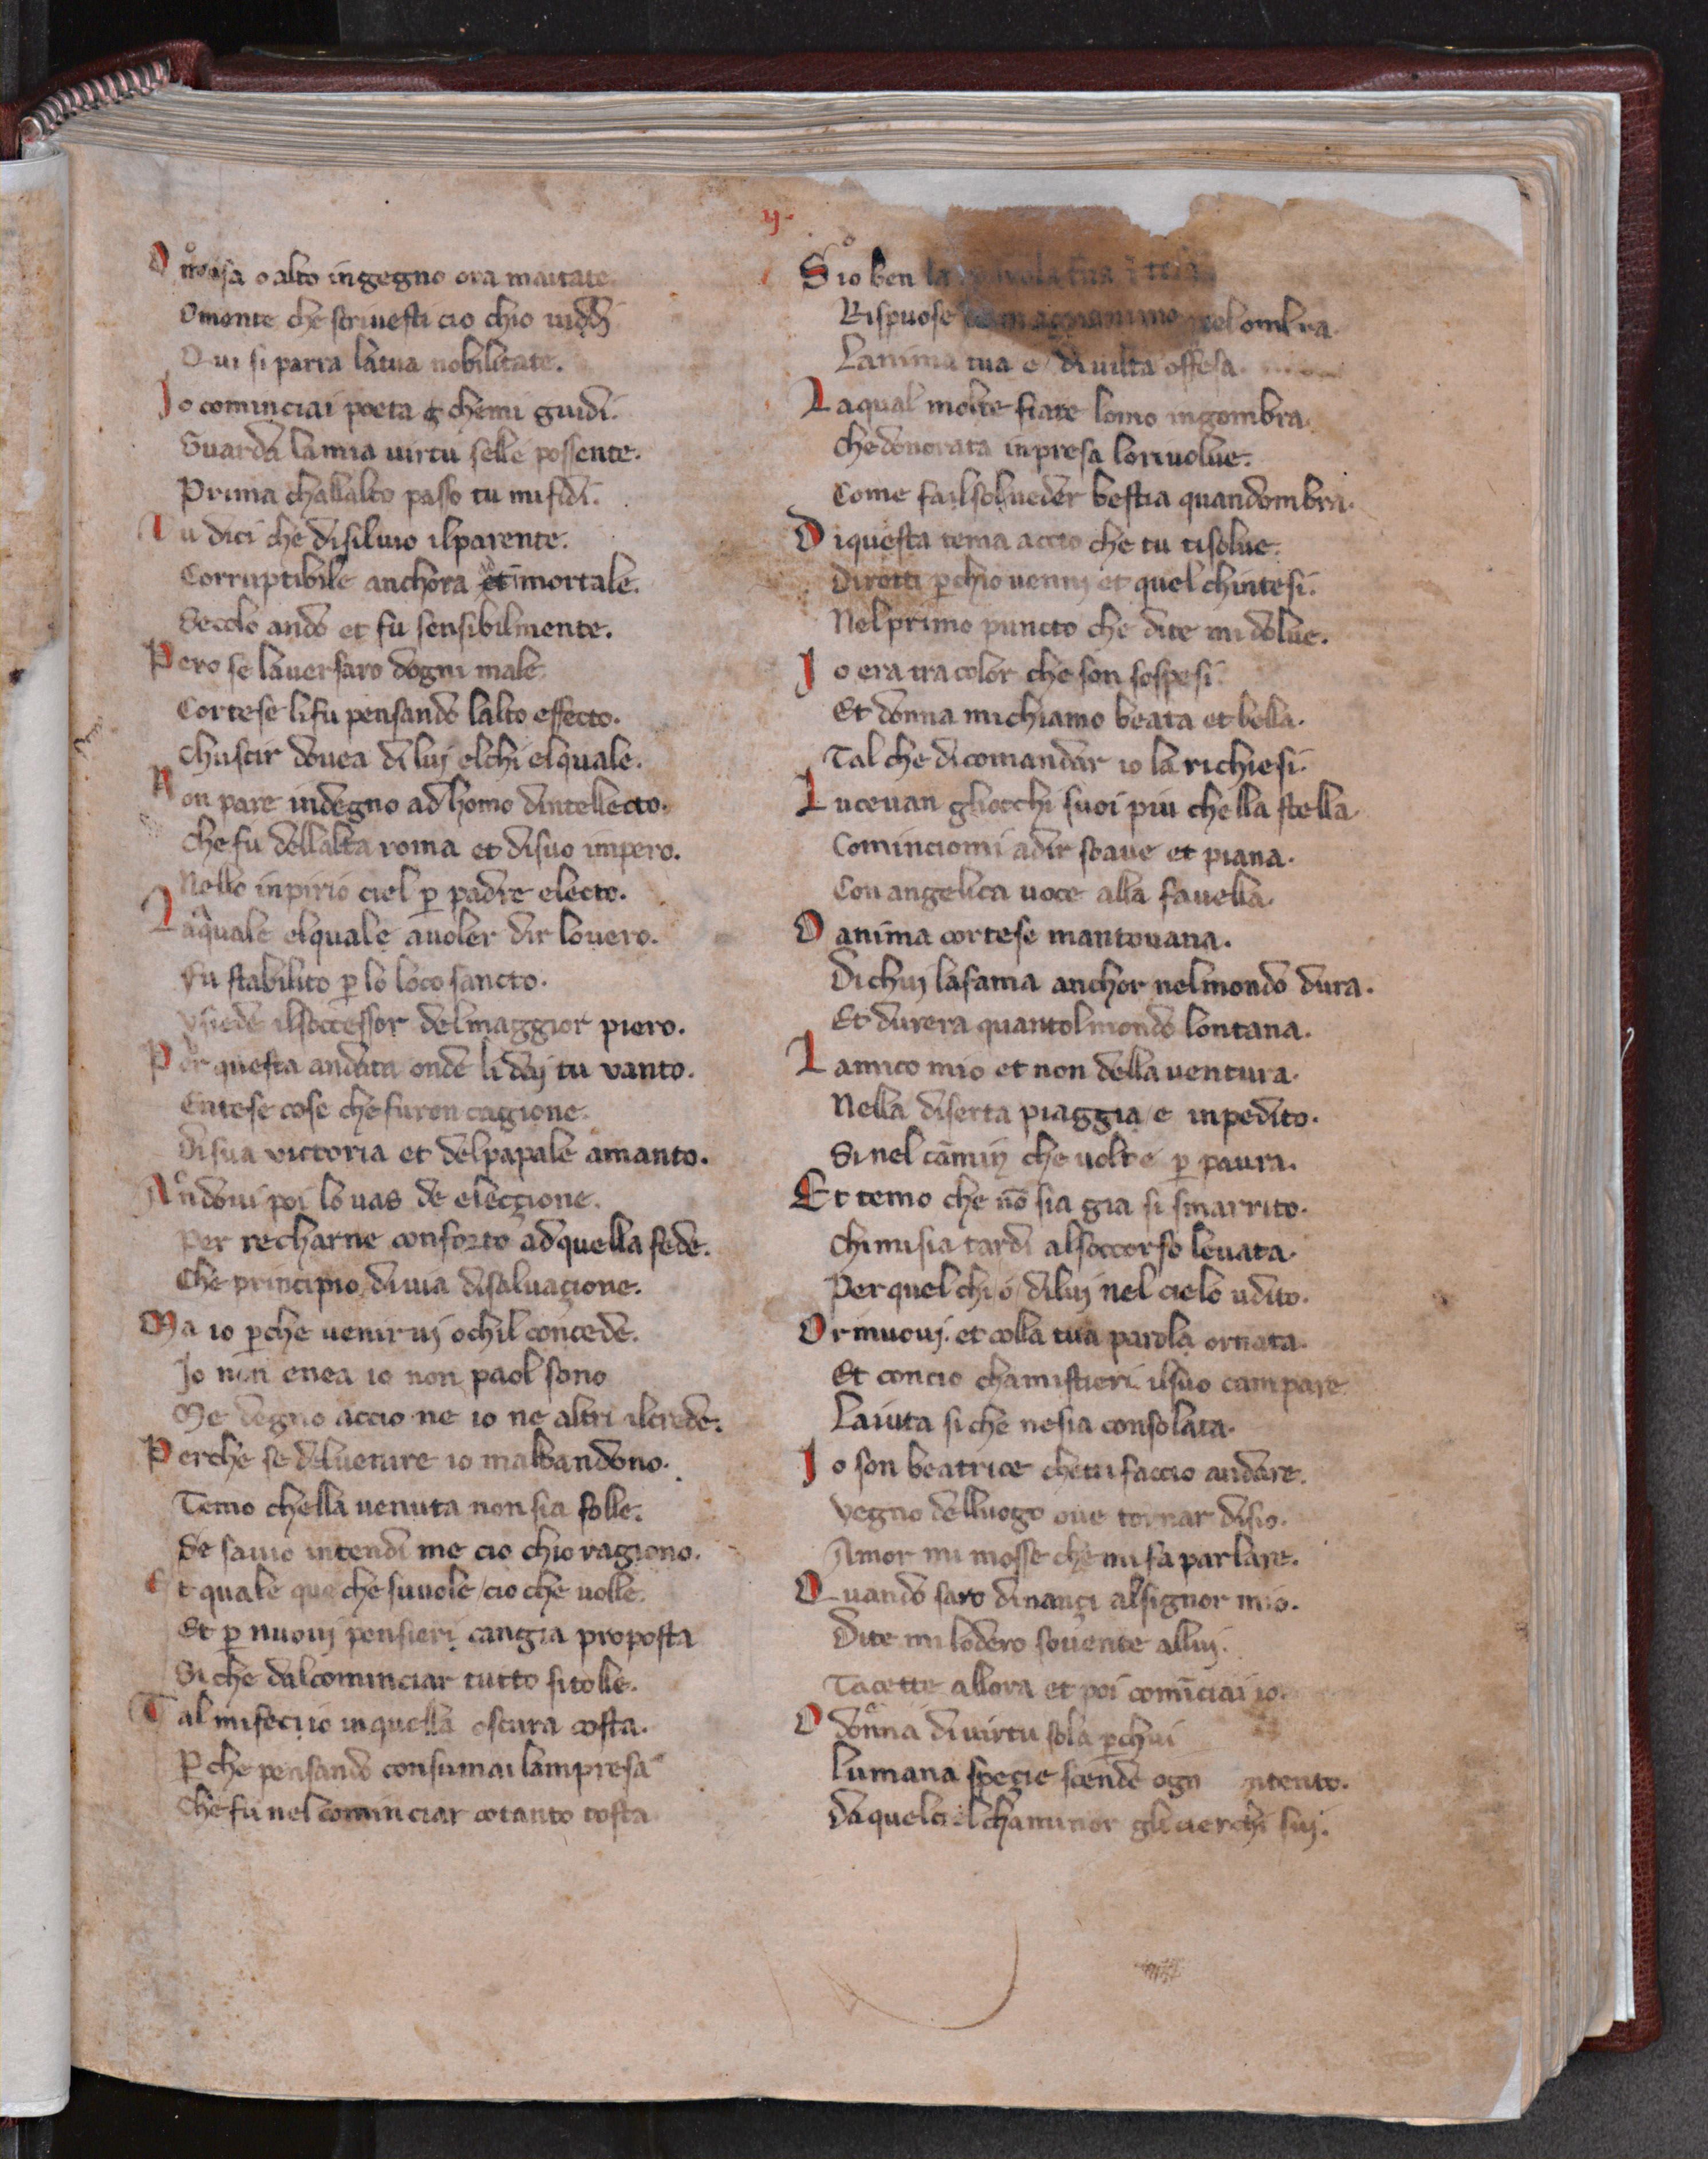 ij.
O musa o alto ingegno ora maitate
Omente che scrivesti cio chio uiddi
Qui si parra la tua nobilitate.
Jo cominciai poeta che mi guidi.
Guarda la mia uirtu selle possente.
Prima challalto passo tu mi fidi.
Tu dici che disiluio ilparente.
Corruptibile anchora et imortale.
Secolo ando et fu sensibilmente.
Pero se lauersaro dogni male.
Cortese lifu pensando lalto effecto.
Chuscir douea di luj elchi elquale.
Non pare indegno ad homo dintellecto.
che fu dellalta roma et disuo impero.
Nello inpirio ciel ꝑ padre electo.
Laquale elquale auoler dir louero.
Fu stabilito ꝑ lo loco sancto.
Vsiede ilsoccessor delmaggior piero.
Per questa andata onde li daj tu vanto.
Entese cose che furon cagione.
Disua victoria et delpapale amanto.
Andoui poi lo uas de elecçione.
Per recharne conforto ad quella fede.
Che principio diuia disaluaçione.
Ma io ꝑche uenirui ochil concede.
Jo non enea io non paol sono
Me degno accio ne io ne altri ilcrede.
Perche se deluenire io mabandono.
Temo chella uenuta non sia folle.
Se sauio intendi me cio chio ragiono.
Et quale que che suuole / cio che uolle.
Et ꝑ nuouj pensieri cangia proposta
Si che dalcominciar tutto sitolle.
Tal mifecijo in quella oscura costa.
Ꝑ che pensando consumai lampresa
Che fu nel cominciar cotanto tosta
S io ben la
Rispuose magnanimo quel ombra.
Lanima tua e / diuilta offesa.
Laqual molte fiate lomo ingombra.
che donorata inpresa loriuolue.
Come failsolueder bestia quandombra.
Diquesta tema accio che tu tisolue.
Dirotti ꝑchio uennj et quel chintesi.
Nelprimo puncto che dite mi dolue.
Jo era tra color che son sospesi
Et donna michiamo beata et bella.
Tal che dicomandar io la richiesi.
Luceuan gliocchi suoi piu che lla stella
Cominciomi adir soaue et piana.
Con angelica uoce alla fauella.
O anima cortese mantouana.
Dichuj lafama anchor nelmondo dura.
Et durera quantolmondo lontana.
Lamico mio et non della uentura.
Nella diserta piaggia / e inpedito.
Sinel camin che uolte ꝑ paura.
Et temo che nō sia gia si smarrito.
Chi misia tardi alsoccorso leuata.
Per quel chi o / diluj nel cielo udito.
Or muouj. et colla tua parola ornata.
Et concio chamistieri ilsuo campare
Laiuta si che nesia consolata.
Jo son beatrice chetifaccio andare.
Vegno delluogo oue tornar disio.
Amor mi mosse che mi fa parlare.
Quando saro dinançi alsignor mio.
Dite mi lodero souente alluj.
Tacette allora et poi comīciai io.
O donna diuirtu sola ꝑchui
lumana speçie scende ogn ntento.
Da quelciel chaminor gli cierchi suj.